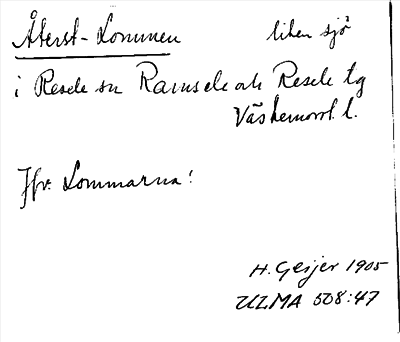 Återst-Lommen liten sjö
i Resele sn Ramsele och Resele tg
Västernorrl. l.
Jfr. Lommarna!
H. Geijer 1905
ULMA 508:47